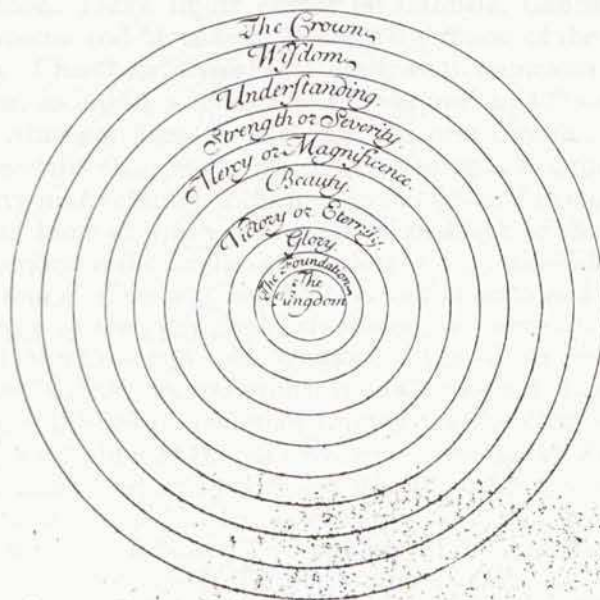 The Crown.
Wisdom.
Understanding.
Strength or Severity.
Mercy or Magnificence.
Beauty.
Victory or Eternity.
Glory.
The Foundation.
The
Kingdom